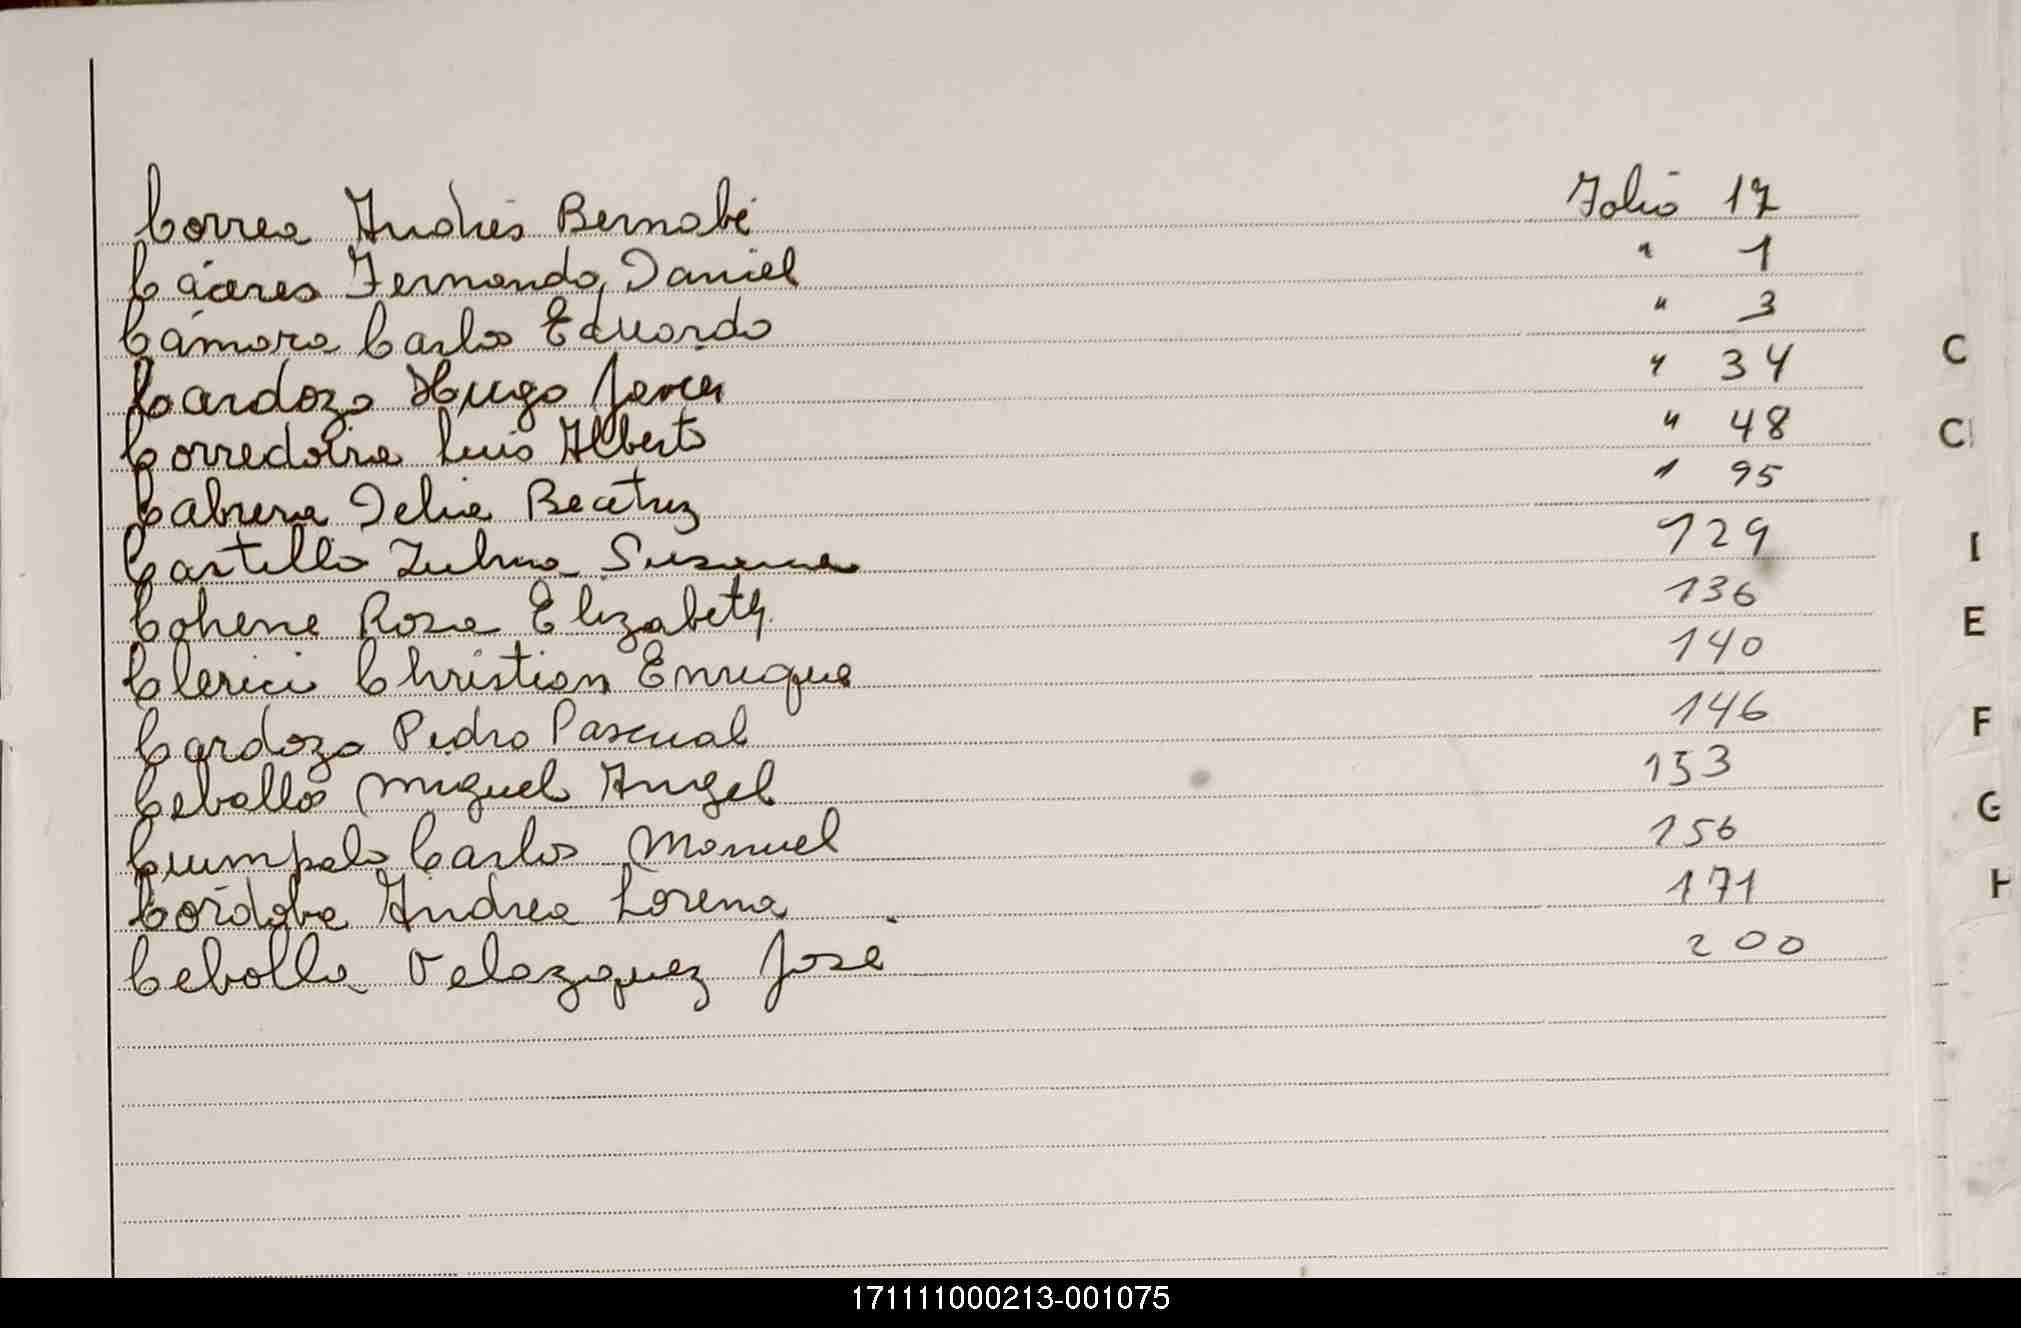 Correa Andrés Bernabé Folio 17
Cáceres Fernando, Daniel " 1
Cámara Carlos Eduardo " 3
Cardozo Hugo Javier " 34
Corredoira Luis Alberto " 48
Cabrera Delia Beatriz " 95
Castillo Zulma Susana 129
Cohene Rosa Elizabeth 136
Clerici Christian Enrique 140
Cardozo Pedro Pascual 146
Ceballos Miguel Angel 153
Crumpalo Carlos Manuel 156
Córdoba Andrea Lorena 171
Cebolla Velazquez José 200
C
C
I
E
F
G
H
171111000213-001075